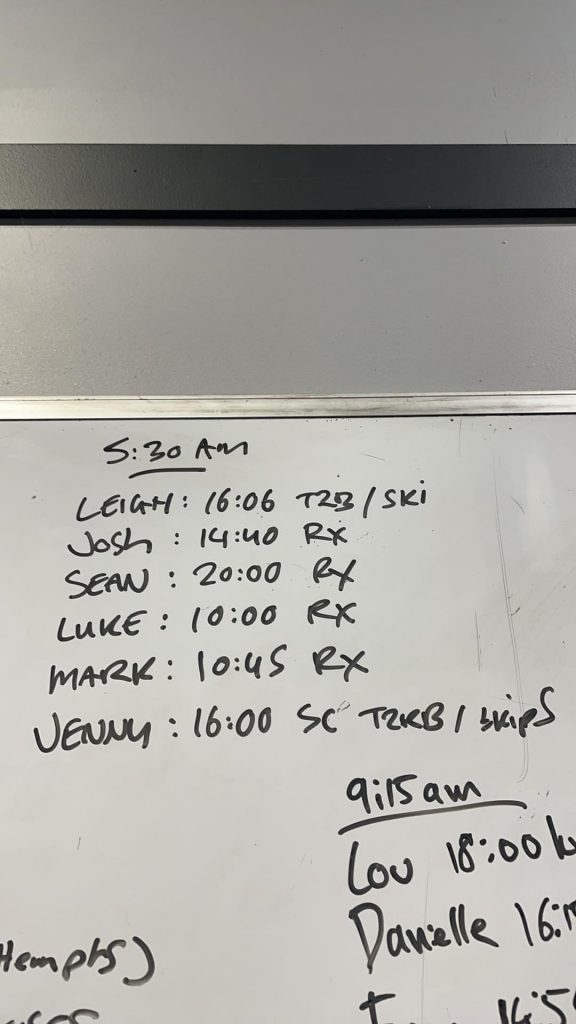 5:30 AM
LEIGH: 16:06 T2B/SKi
Josh : 14:40 RX
SEAN : 20:00 RX
LUKE : 10:00 RX
MARK: 10:45 RX
JENNY : 16:00 SC T2KB / skipS
9:15 am
Lou 18:00
Danielle